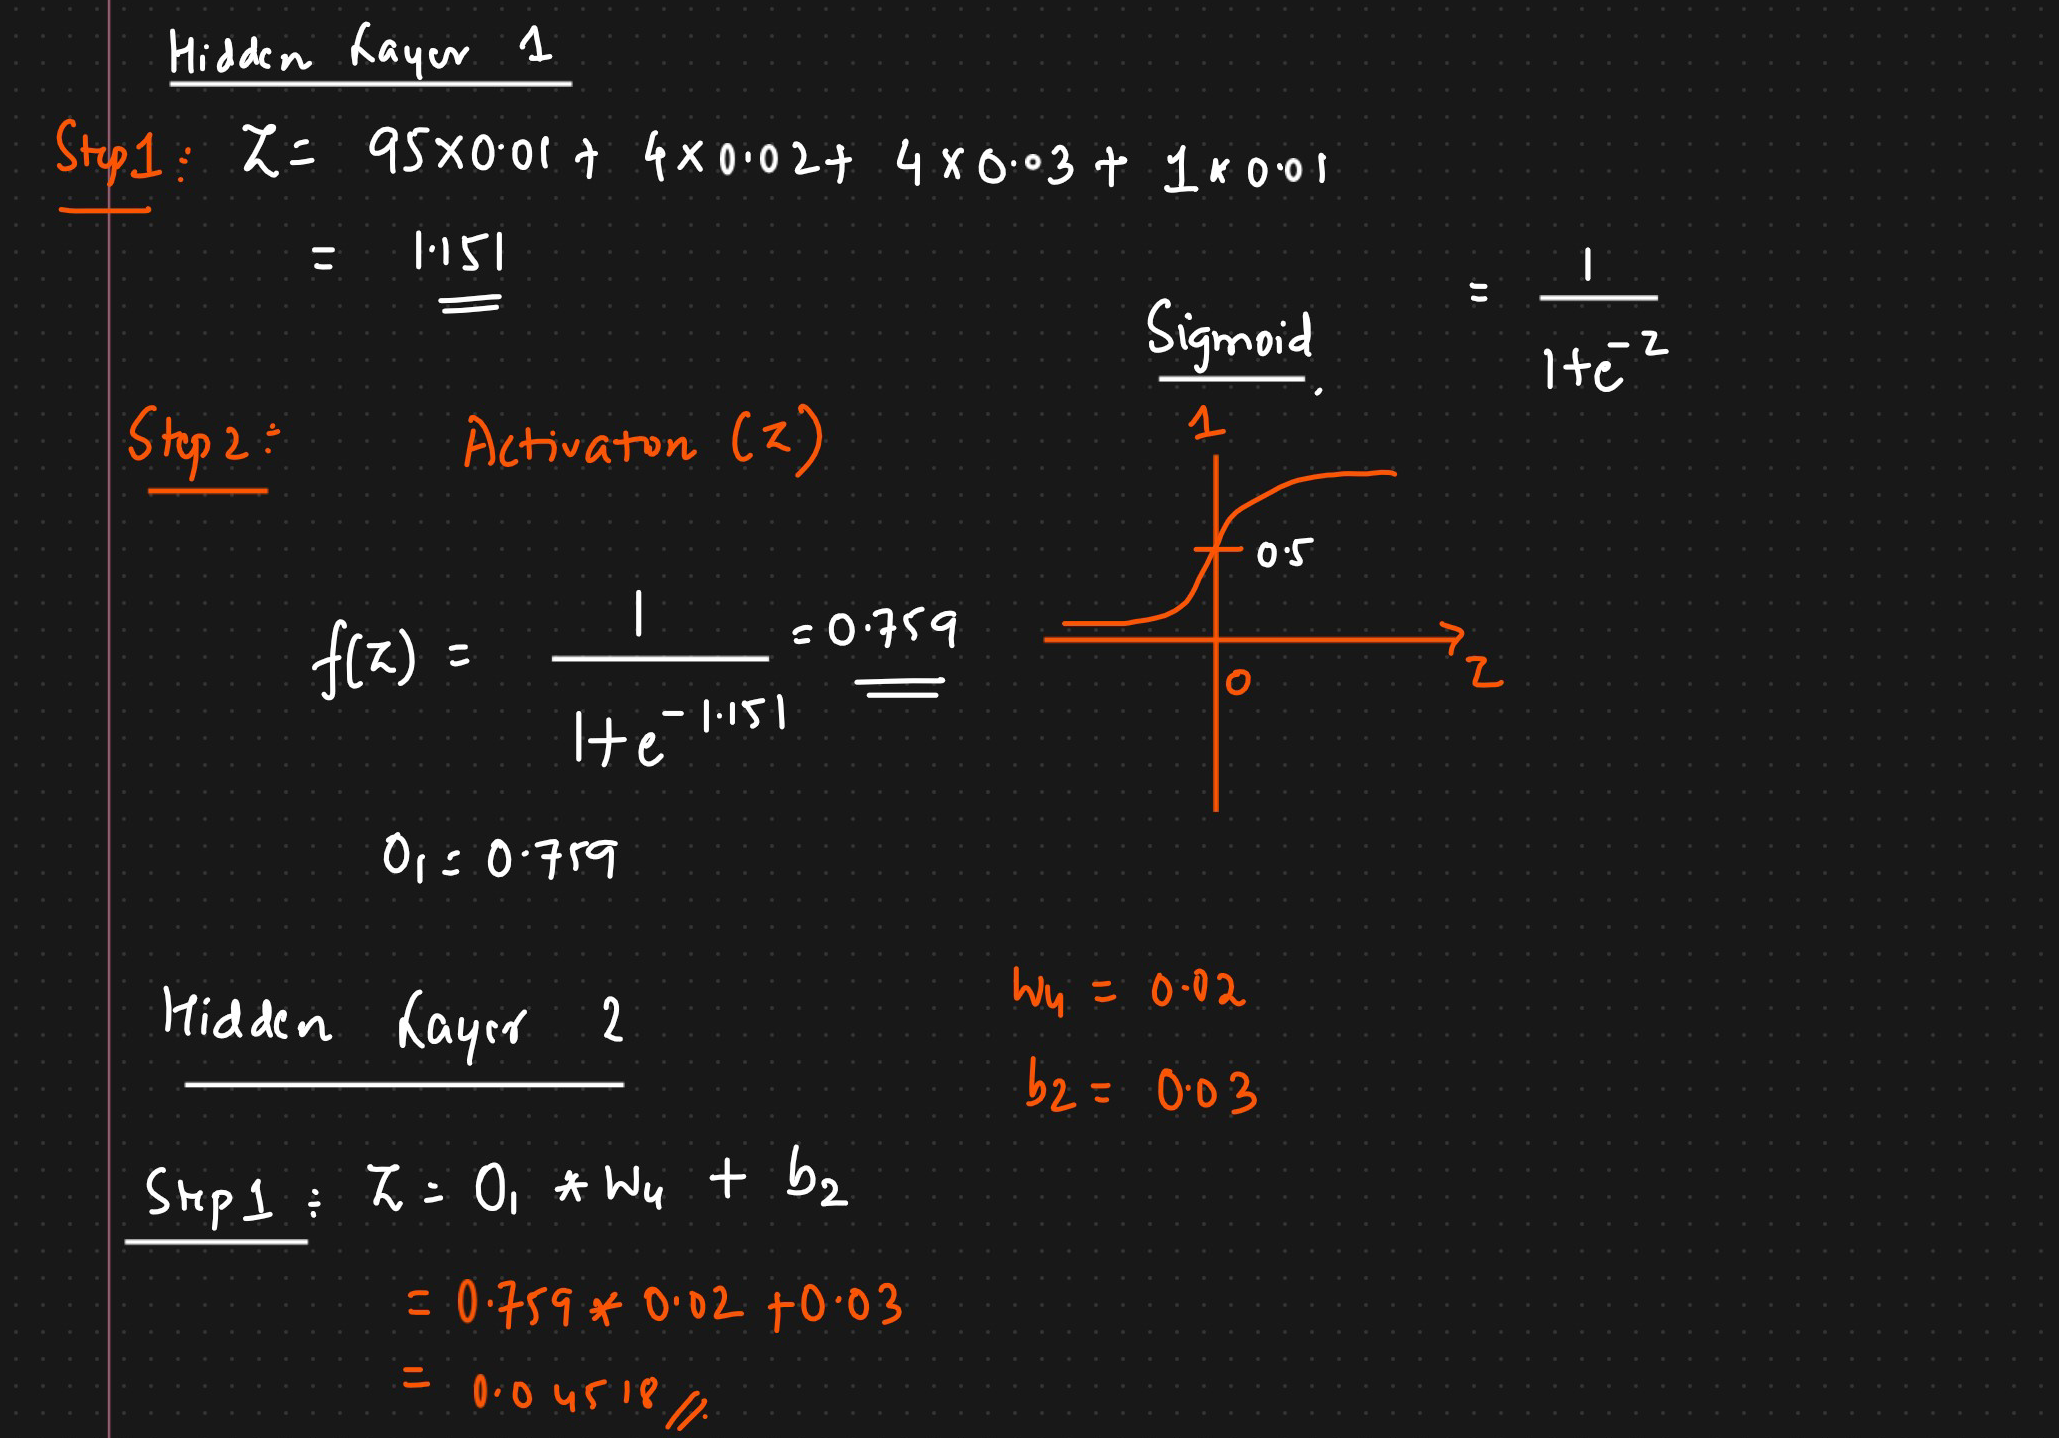 Hidden Layer 1
Step 1: Z = 95×0.01 + 4×0.02 + 4×0.03 + 1×0.01
= 1.151
Sigmoid = 1/(1+e^-z)
Step 2: Activaton (Z)
1
0.5
0
z
f(z) = 1/(1+e^-1.151) = 0.759
O1 = 0.759
Hidden Layer 2
W4 = 0.02
b2 = 0.03
Step 1: Z = O1 * W4 + b2
= 0.759 * 0.02 + 0.03
= 0.04518 //